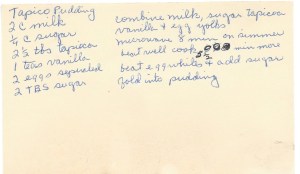 Tapico Pudding
2 C milk
C sugar
2 ½ tbs tapioca
1 teas vanilla
2 eggs seperated
2 TBS sugar
combine milk, sugar tapioca
vanilla & egg yolks
microwave 8 min on simmer
beat well cook 5 min more
beat egg whites & add sugar
fold into pudding